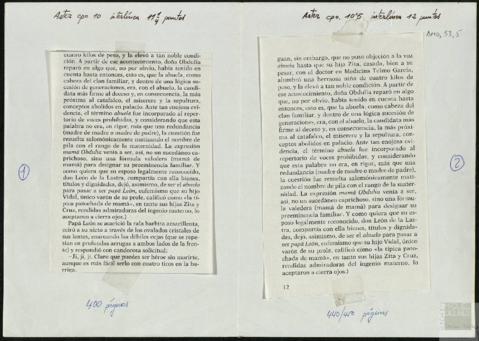 Aster cpo. 10 interlínea 11 puntos
cuatro kilos de peso, y la elevó a tan noble condi-
ción. A partir de ese acontecimiento, doña Obdulia
reparó en algo que, no por obvio, había tenido en
cuenta hasta entonces, esto es, que la abuela, como
cabeza del clan familiar, y dentro de una lógica su-
cesión de generaciones, era, con el abuelo, la candida-
ta más firme al deceso y, en consecuencia, la más
próxima al catafalco, al misterio y la sepultura,
conceptos abolidos en palacio. Ante tan enojosa evi-
dencia, el término abuela fue incorporado al reper-
torio de voces prohibidas, y considerando que esta
palabra no era, en rigor, más que una redundancia
(madre de madre o madre de padre), la cuestión fue
resuelta salomónicamente motejando el nombre de
pila con el rango de la maternidad. La expresión
mamá Obdulia venía a ser, así, no un sucedáneo ca-
prichoso, sino una fórmula valedera (mamá de la
mamá) para designar su preeminencia familiar. Y
como quiera que su esposo legalmente reconocido,
don León de la Lastra, compartía con ella bienes,
títulos y dignidades, dejó, asimismo, de ser el abuelo
para pasar a ser papá León, eufemismo que su hijo
Vidal, único varón de su prole, calificó como «la tí-
pica patochada de mamá», en tanto sus hijas Zita y
Cruz, rendidas admiradoras del ingenio materno, lo
aceptaron a cierra ojos.)
Papá León se acarició la rala barbita amarillenta,
miró a su nieto a través de los ovalados cristales de
sus lentes,
y respondió con candorosa solicitud:
—Ji, ji, ji. Claro que puedes ser héroe sin muerte,
aunque es más fácil serlo con cuatro tiros en la ba-
rriga.
1
400 páginas
Aster cpo. 10'5 interlínea 12 puntos
AMD, 53, 5
guin, sin embargo, que no puso objeción a la voz
abuela hasta que su hija Zita, casada, bien a su
pesar, con el doctor en Medicina Telmo García,
alumbró una hermosa niña de cuatro kilos de
peso, y la elevó a tan noble condición. A partir de
ese acontecimiento, doña Obdulia reparó en algo
que, no por obvio, había tenido en cuenta hasta
entonces, esto es, que la abuela, como cabeza del
clan familiar, y dentro de una lógica sucesión de
generaciones, era, con el abuelo, la candidata más
firme al deceso y, en consecuencia, la más próxi-
ma al catafalco, al misterio y la sepultura, con-
ceptos abolidos en palacio. Ante tan enojosa evi-
dencia, el término abuela fue incorporado al
repertorio de voces prohibidas, y considerando
que esta palabra no era, en rigor, más que una
redundancia (madre de madre o madre de padre),
la cuestión fue resuelta salomónicamente motejan-
do el nombre de pila con el rango de la mater-
nidad. La expresión mamá Obdulia venía a ser,
así, no un sucedáneo caprichoso, sino una fórmu-
la valedera (mamá de la mamá) para designar su
preeminencia familiar. Y como quiera que su es-
poso legalmente reconocido, don León de la Las-
tra, compartía con ella bienes, títulos y dignida-
des, dejó, asimismo, de ser el abuelo para pasar a
ser papá León, eufemismo que su hijo Vidal, único
varón de su prole, calificó como «la típica pato-
chada de mamá», en tanto sus hijas Zita y Cruz,
rendidas admiradoras del ingenio materno, lo
aceptaron a cierra ojos.)
12
2
440/450 páginas